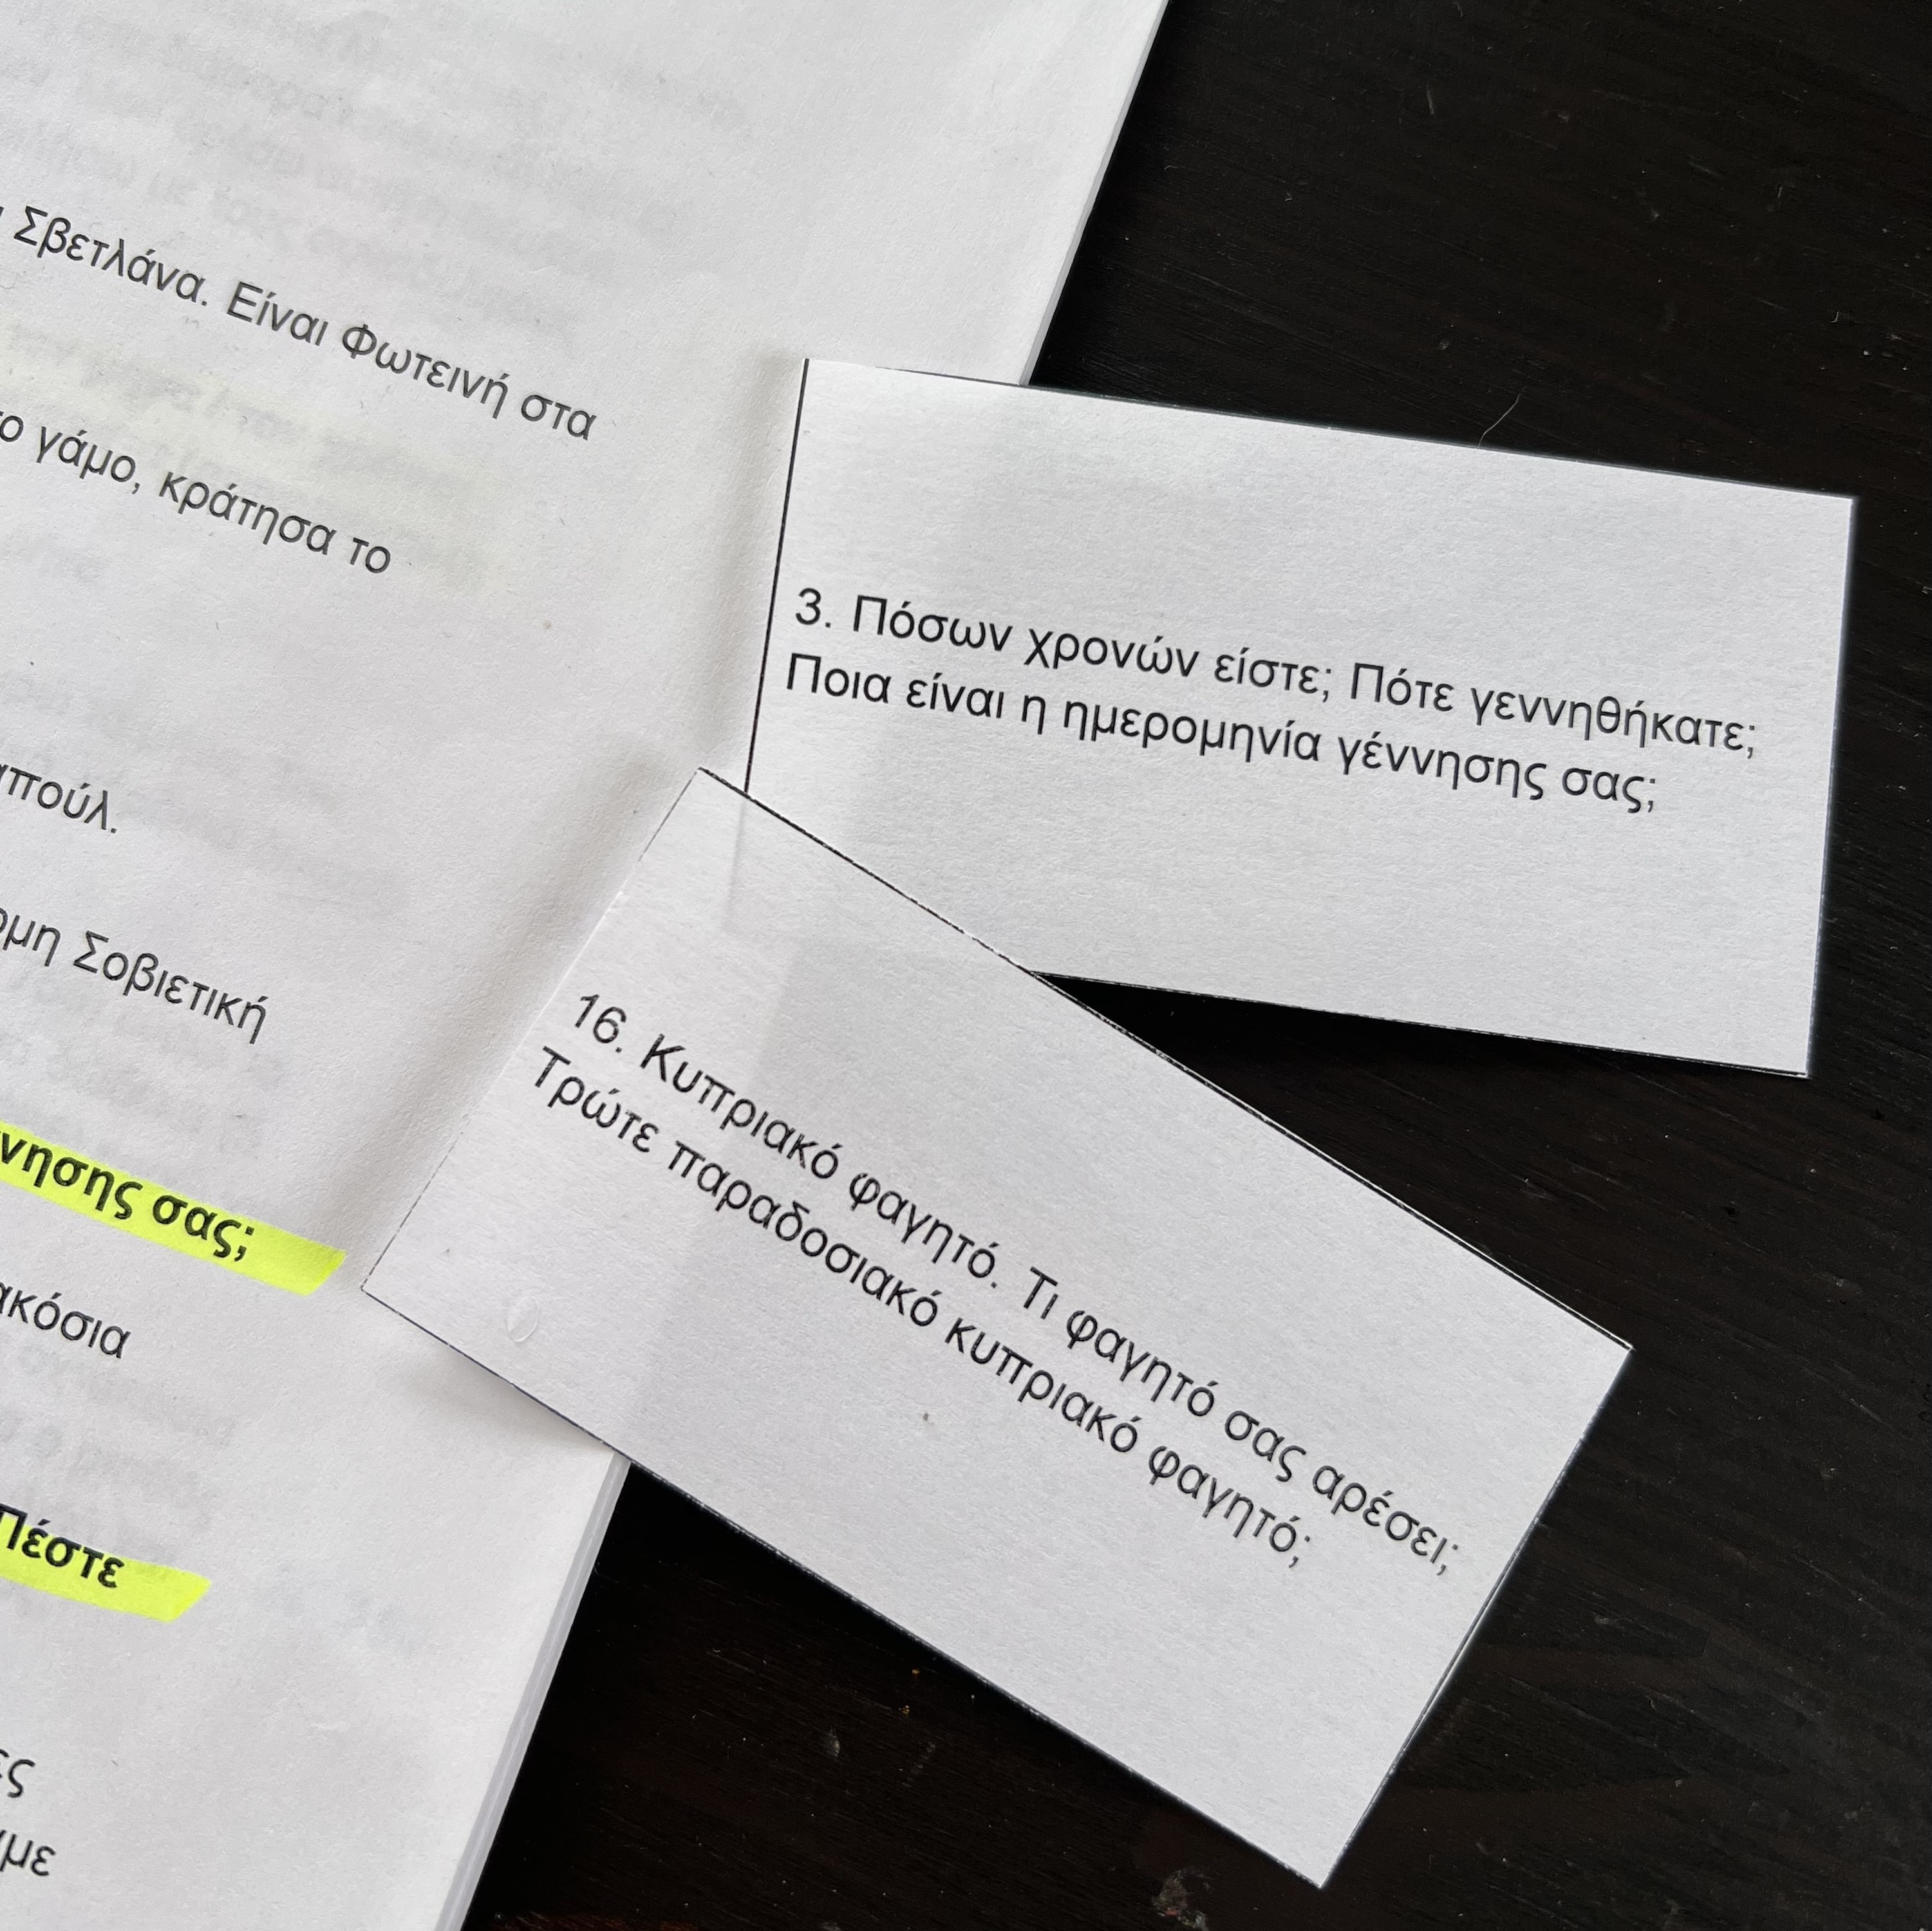 Σβετλάνα. Είναι Φωτεινή στα
γάμο, κράτησα το
Σοβιετική
σας;
Πέστε
3. Πόσων χρονών είστε; Πότε γεννηθήκατε;
Ποια είναι η ημερομηνία γέννησης σας;
16. Κυπριακό φαγητό. Τι φαγητό σας αρέσει;
Τρώτε παραδοσιακό κυπριακό φαγητό;